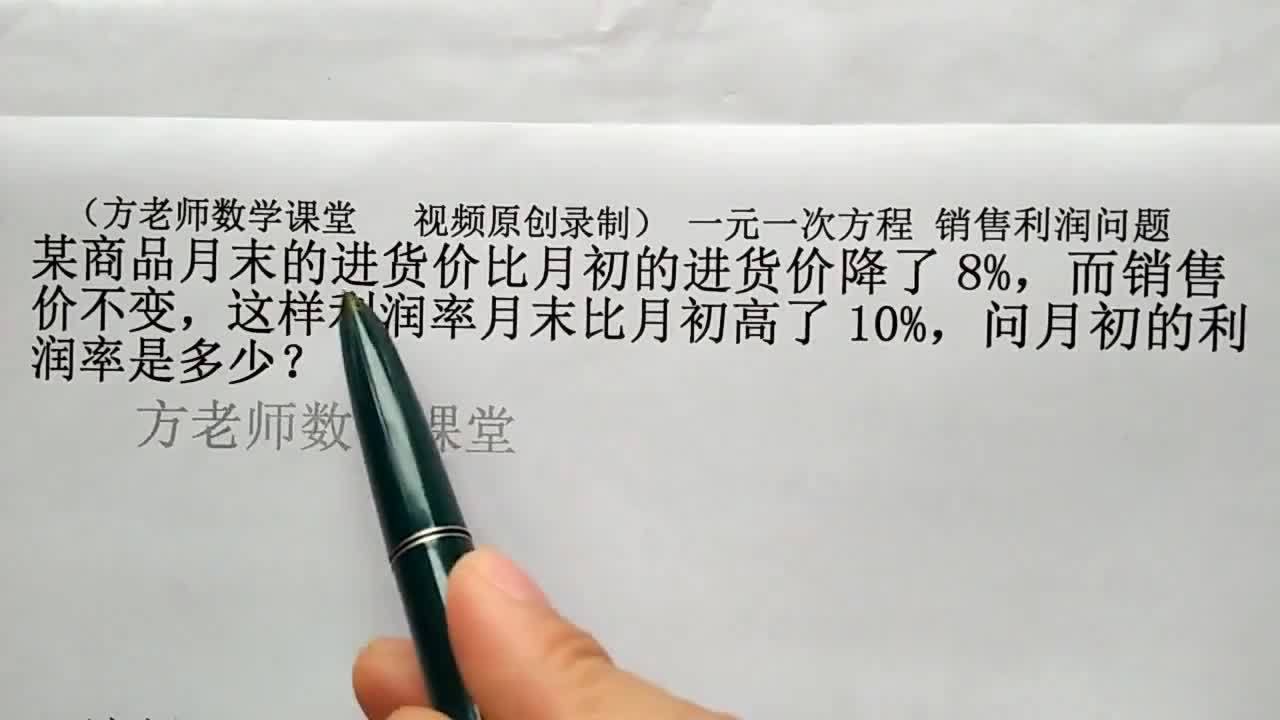 （方老师数学课堂 视频原创录制） 一元一次方程 销售利润问题
某商品月末的进货价比月初的进货价降了 8%，而销售
价不变，这样利润率月末比月初高了 10%，问月初的利
润率是多少？
方老师数 课堂